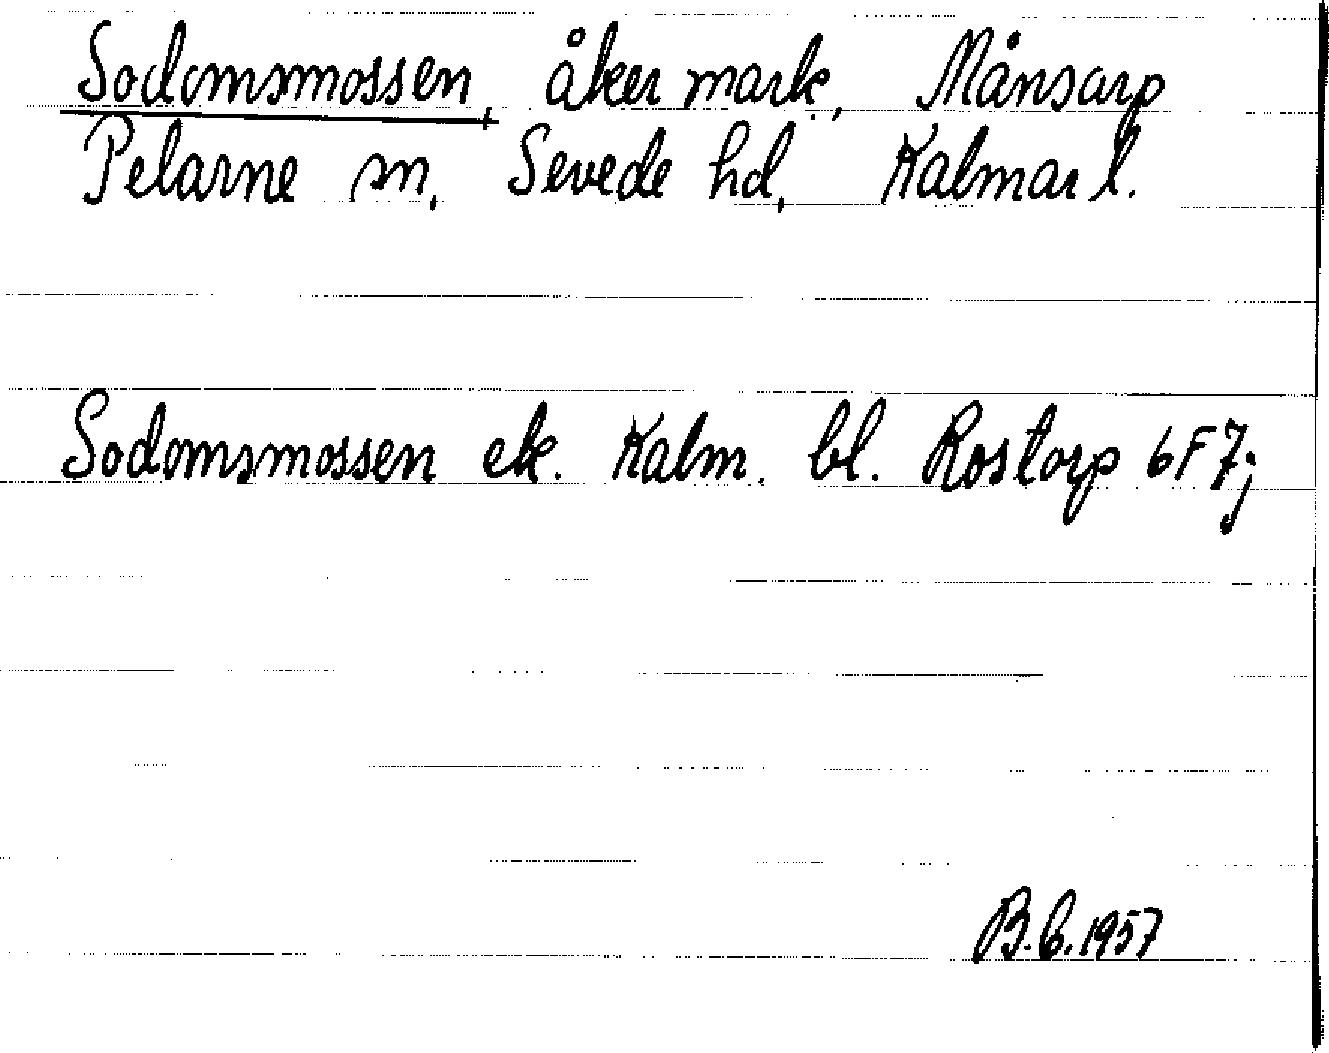 Sodomsmossen, åker mark, Månsarp
Pelarne sn, Sevede hd, Kalmar l.
Sodomsmossen ek. Kalm. bl. Rostorp 6F7j
B.C. 1957